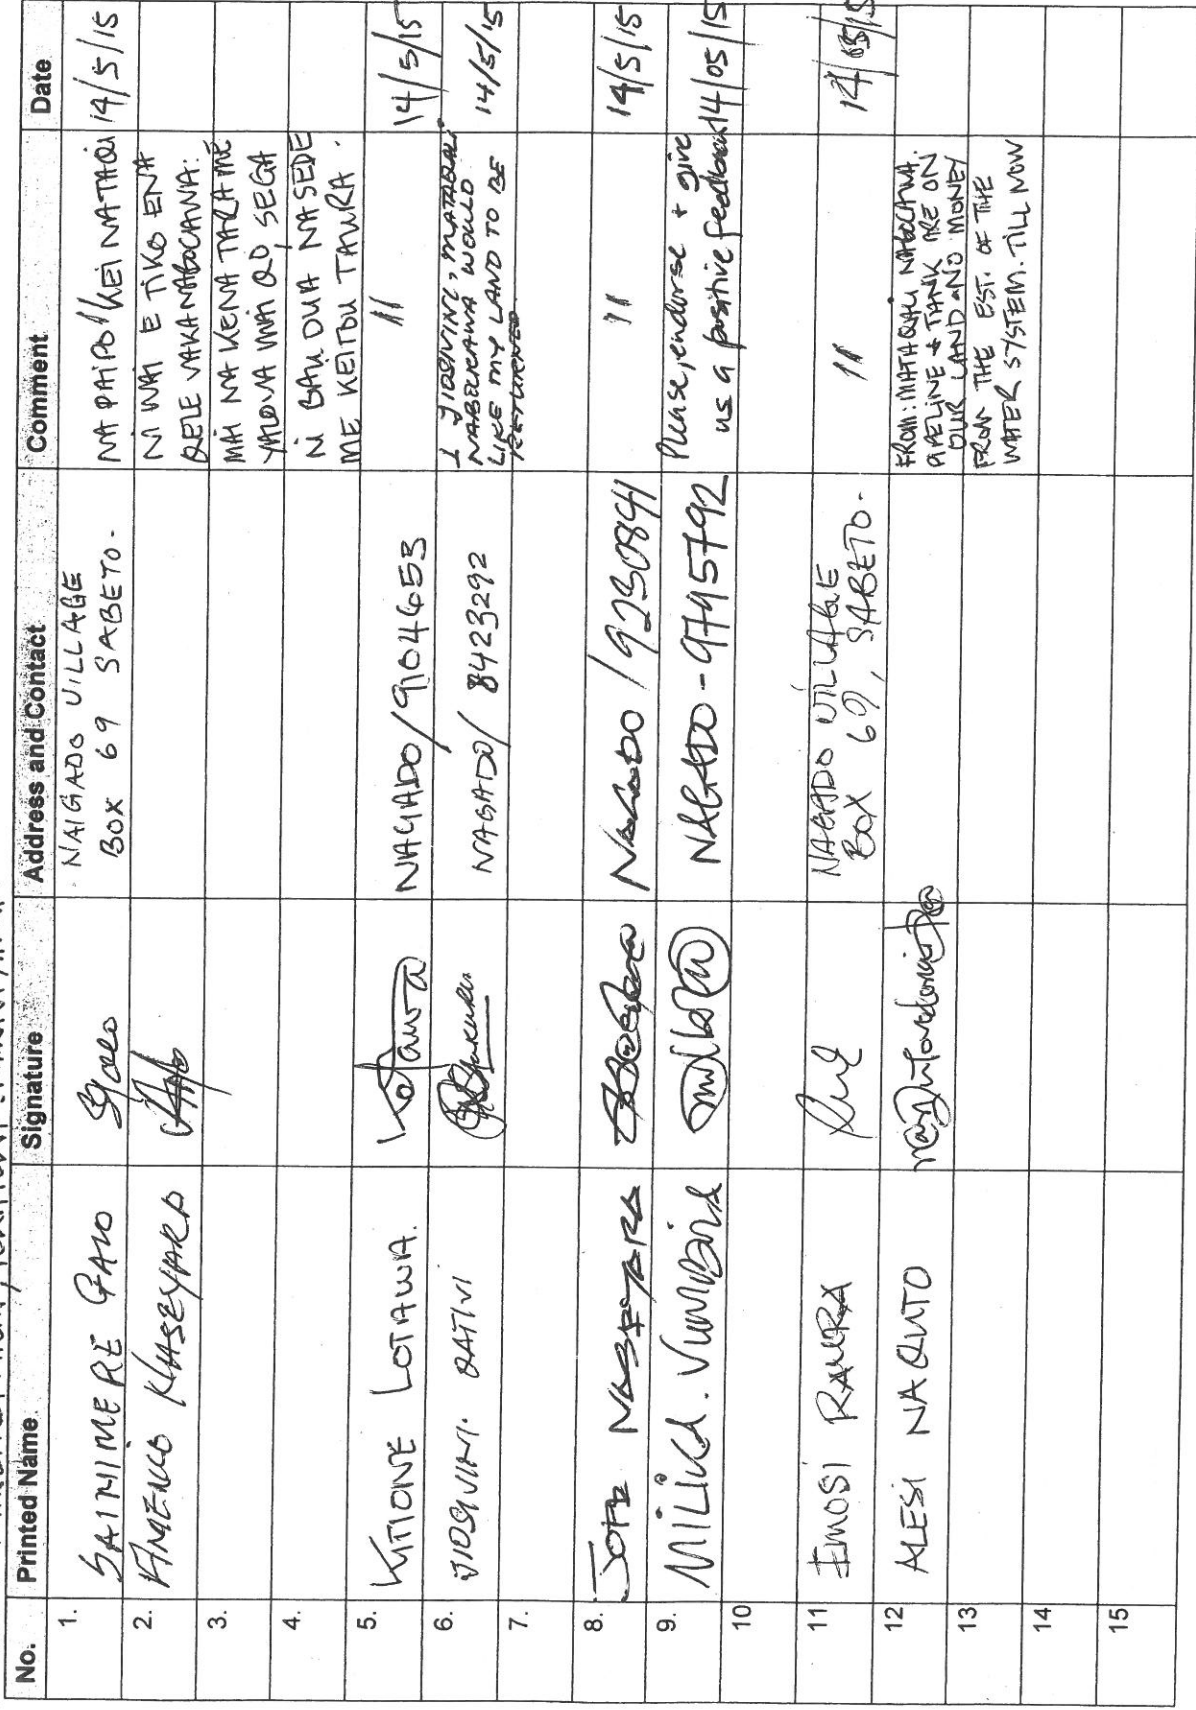 No. Printed Name Signature Address and Contact Comment Date
1. SAIMIMERE GALO NAIGADO VILLAGE
BOX 69 SABETO. NA PAIPO KEI NATAQI 14/5/15
2. NI WAI E TIKO ENA
QELE VAKANABOCAWA.
3. MAI NA KENA TARA ME
YACOVA MAI QO, SEGA
4. NI BAU DUA NA SEDE
ME KEITOU TAURA.
5. KITIONE LOTAWA. NAGADO/9104653 11 14/5/15
6. JIOSIVINI. QATIVI NAGADO/ 8423292 I JIOSIVINI, MATAQALI
NABEUKAWA WOULD
LIKE MY LAND TO BE
RETURNED 14/5/15
7.
8. 9230841 11 14/5/15
9. MILIKA. NAGADO - 9795792 Please, endorse + give
us a positive feedback 14/05/15
10
11 EMOSI NAGADO VILLAGE
BOX 69, SABETO. 11 14/05/15
12 ALESI NAQUTO FROM: MATAQALI NABOCAWA.
PIPELINE & TANK ARE ON
OUR LAND & NO MONEY
13 FROM THE EST. OF THE
WATER SYSTEM. TILL NOW
14
15